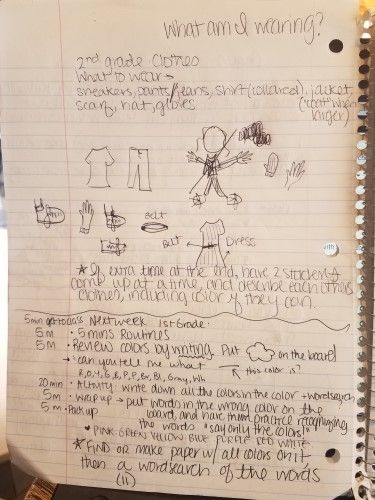 What am I wearing?
2nd grade clothes
What to wear →
sneakers, pants/jeans, shirt (collared), jacket
scarf, hat, gloves ("coat" when
larger)
Belt
Belt Dress
* If extra time at the end, have 2 students
come up at a time, and describe each others
clothes, including color if they can.
5 min get to class Next week 1st Grade
5 m • 5 mins Routines
5 m • Review colors by writing. Put on the board
→ can you tell me what ↑ this color is?
R, O, Y, G, B, P, P, Br, Bl, Gray, Wh
20 min • Activity: write down all the colors in the color + wordsearch
5 m • Wrap up → put words in the wrong color on the
5 m • Pack up board, and have them practice recognizing
the words "say only the colors!"
PINK GREEN YELLOW BLUE PURPLE RED WHITE
* FIND or make paper w/ all colors on it
then a wordsearch of the words
(11)